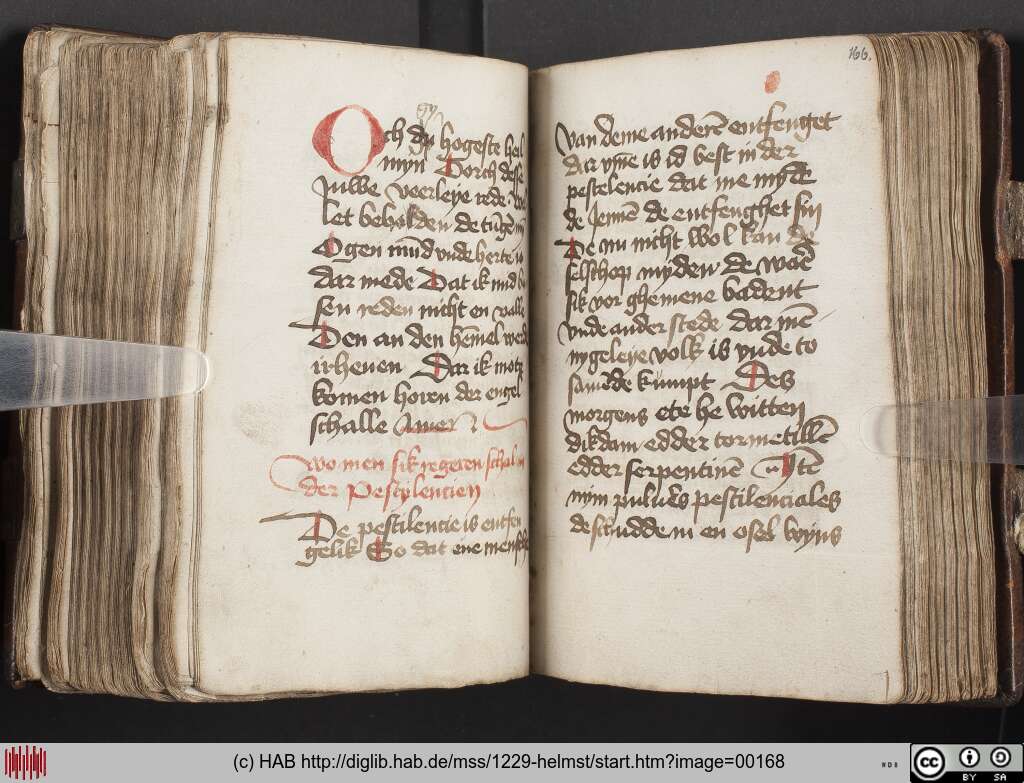 Och dy hogeste heil
myn Dorch desse
Juwe veerleye rede wol
let beholden de tũgẽ myn
Ogen mũd vnde herte is
dar mede Dat ik nud bo
sen reden nicht en valle
Den an den hẽmel werd
irheuen Dar ik mote
komen horen der engel
schalle Amen
wo men sik regeren schal in
der Pestylencien
De pestilencie is entfen
gelik So dat ene mensche
166.
van deme anderẽ entfenget
dar yme is id best in der
pestelencie dat me myde
de Jennẽ de entfenghet sin
De nu nicht wol kan de
selschop myden de ware
sik vor ghemene badent
vnde ander stede dar mẽ
nygeleye volk is vnde to
samẽde kumpt Des
morgens ete he witten
dikdam edder tormetillẽ
edder serpentinẽ
nim puluẽs pestilenciales
de schudde in en osel wyns
(c) HAB http://diglib.hab.de/mss/1229-helmst/start.htm?image=00168
WDB
cc
BY SA